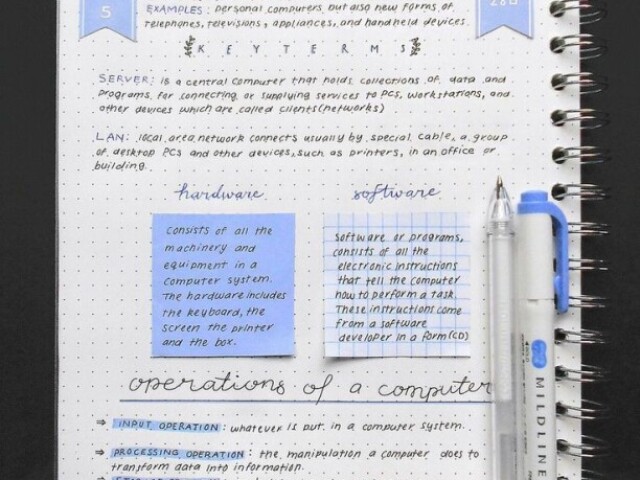 5
EXAMPLES: personal computers but also new forms of
telephones, televisions, appliances, and handheld devices.
KEY TERMS
SERVER: is a central computer that holds collections of data and
programs for connecting or supplying services to PCs, workstations, and
other devices which are called clients(networks)
LAN: local area network connects usually by special cable, a group
of desktop PCs and other devices, such as printers, in an office or
building.
hardware
software
consists of all the
machinery and
equipment in a
computer system.
The hardware includes
the keyboard, the
screen the printer
and the box.
software or programs,
consists of all the
electronic instructions
that tell the computer
how to perform a task.
These instructions come
from a software
developer in a form(CD)
operations of a computer
⇒ INPUT OPERATION: whatever is put in a computer system.
⇒ PROCESSING OPERATION: the manipulation a computer does to
transform data into information.
MILDLINE